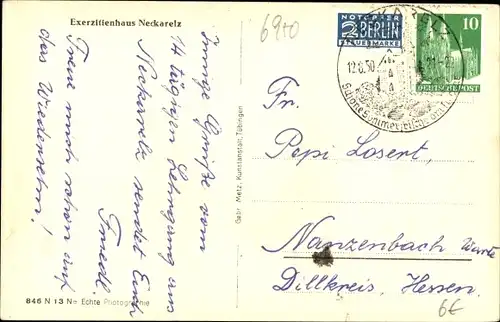 Exerzitienhaus Neckarelz
Innige Grüße vom
14 tägigen Lehrgang aus
Neckarelz sendet Euch
Friedl.
Freue mich schon auf
das Wiedersehn!
846 N 13 N= Echte Photographie
Gebr. Metz, Kunstanstalt, Tübingen
6970
NOTOPFER
2 BERLIN
STEUERMARKE
12.6.50
10
DEUTSCHE POST
Fr.
Pepi Losert,
Nanzenbach
Dillkreis, Hessen.
6€